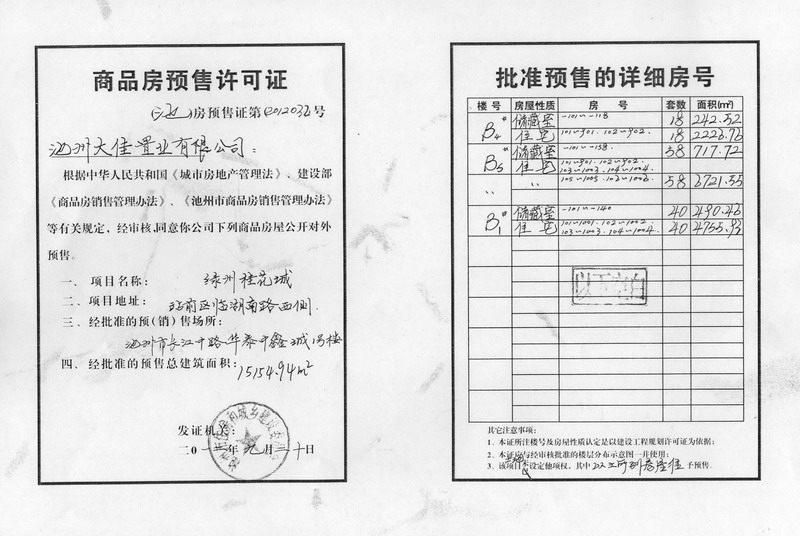 商品房预售许可证
(池)房预售证第(2012036号
池州天佳置业有限公司:
根据中华人民共和国《城市房地产管理法》、建设部
《商品房销售管理办法》、《池州市商品房销售管理办法》
等有关规定,经审核,同意你公司下列商品房屋公开对外
预售。
一、项目名称: 绿洲桂花城
二、项目地址: 站前区临湖南路西侧.
三、经批准的预(销)售场所:
池州市长江中路华泰中鑫城1号楼
四、经批准的预售总建筑面积: 15154.94m²
发证机关:
二0一二年九月二十日
批准预售的详细房号
楼号 房屋性质 房号 套数 面积(m²)
B4# 储藏室 -101~-118 18 242.52
住宅 101~901.102~902. 18 2223.76
B5# 储藏室 -101~-158. 58 717.72
住宅 101~901.102~902.
103~1003.104~1004.
〃 〃 105~1005.103~1006. 58 6721.55
B1# 储藏室 -101~-140 40 490.46
住宅 101~1001.102~1002.
103~1003.104~1004. 40 4755.93
以下空白
其它注意事项:
1.本证所注楼号及房屋性质认定是以建设工程规划许可证为依据;
2.本证房与经审核批准的楼层分布示意图一并使用;
3.该项目未设定他项权,其中以上所列房屋位予预售。